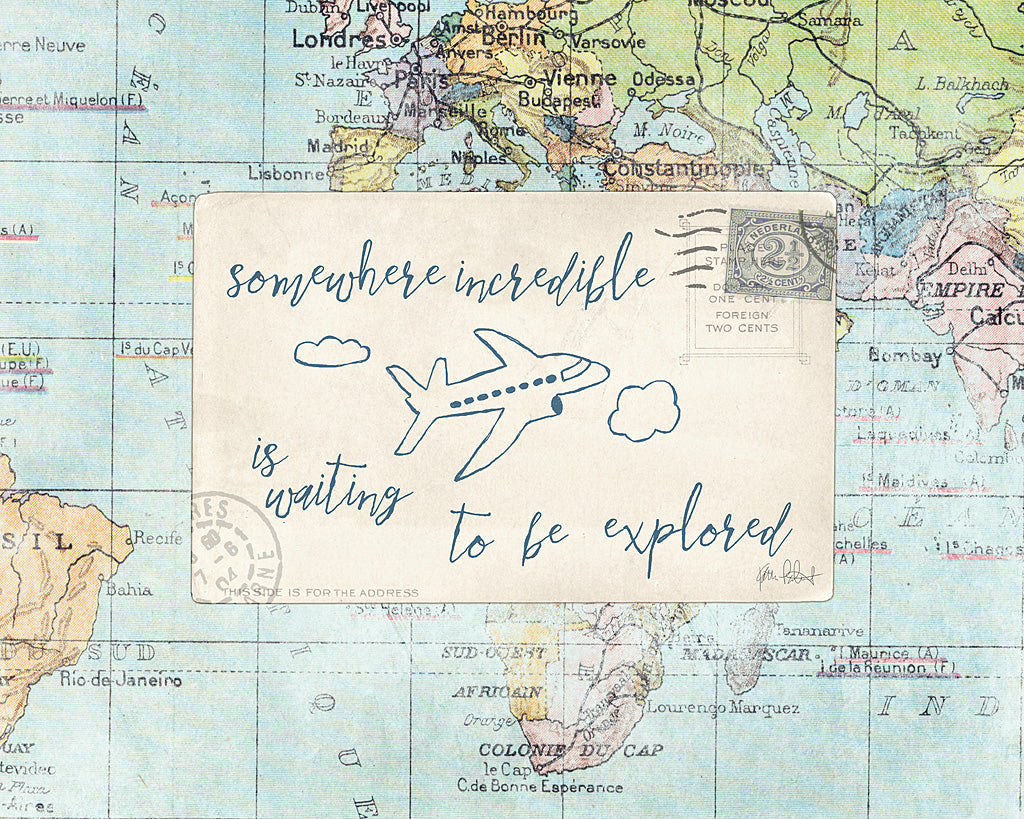 Dublin
Liverpool
Hambourg
Moscou
Samara
Londres
Amst
Berlin
Varsovie
Anvers
erre Neuve
le Havre
Paris
Vienne
Odessa
L. Balkhach
St Nazaire
Budapest
Volga
Don
ierre et Miquelon (F)
Bordeaux
Marseille
M. Noire
Tachkent
Rome
Madrid
Constantinople
Caspienne
Lisbonne
Naples
MED
Açor
(A)
somewhere incredible
NEDERLAND
2½
2½ CENT
STAMP HERE
ONE CENT
FOREIGN
TWO CENTS
Kelat
Delhi
EMPIRE
Calcu
Bombay
(E.U.)
upe (F)
ue (F)
Is du Cap Ve
D'OMAN
Laquedives
Colomb
Is Maldives (A)
is
waiting
to be explored
THIS SIDE IS FOR THE ADDRESS
SIL
Recife
Bahia
chelles
(A)
Is Chagos
OCÉAN
DU SUD
Rio de Janeiro
Ste Hélène (A)
SUD-OUEST
AFRICAIN
Orange
COLONIE DU CAP
le Cap
C. de Bonne Espérance
Lourenço Marquez
Tananarive
MADAGASCAR
I. Maurice (A)
I. de la Réunion (F)
IND
UAY
tevideo
Plata
-Aires